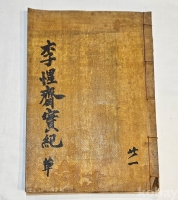 李惺齋實紀 單
廿一